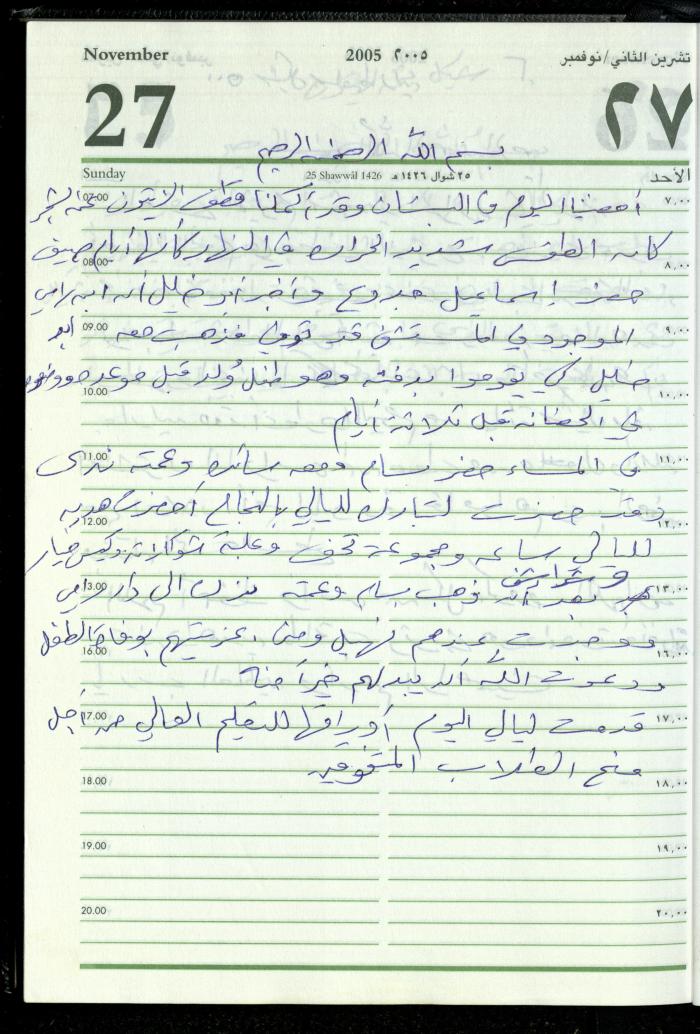 November 2005 ٢٠٠٥ تشرين الثاني/نوفمبر
27 ٢٧
بسم الله الرحمن الرحيم
Sunday 25 Shawwāl 1426 ٢٥ شوال ١٤٢٦ هـ الأحد
07.00 أمضينا اليوم في البستان وقد أكملنا قطف الزيتون عن الشجر ٧,٠٠
كان الطقس شديد الحرارة في النهار كأنها أيام صيف
08.00 ٨,٠٠
حضر إسماعيل وأخبر أبو خليل أن ابن رامي
09.00 الموجود في المستشفى قد توفي فذهب معه أبو ٩,٠٠
خليل كي يقوموا بدفنه وهو طفل وُلد قبل موعده
10.00 ١٠,٠٠
في الحضانة قبل ثلاثة أيام
11.00 في المساء حضر بسام ومعه سائدة وعمته ندى ١١,٠٠
وقد حضرت لتبارك لليالي بالنجاح أحضرت هدية
12.00 ١٢,٠٠
لليالي ساعة ومجموعة تحف وعلبة شوكولاتة وكيس خيار
وشراشف
13.00 بعد أن ذهب بسام وعمته نزلت الى دار رامي ١٣,٠٠
ووجدت عندهم نهيل ومنى، عزيتهم بوفاة الطفل
16.00 ١٦,٠٠
ودعوت الله أن يبدلهم خيراً منه
17.00 قدمت ليالي اليوم أوراقها للتعليم العالي من أجل ١٧,٠٠
منح الطلاب المتفوقين
18.00 ١٨,٠٠
19.00 ١٩,٠٠
20.00 ٢٠,٠٠